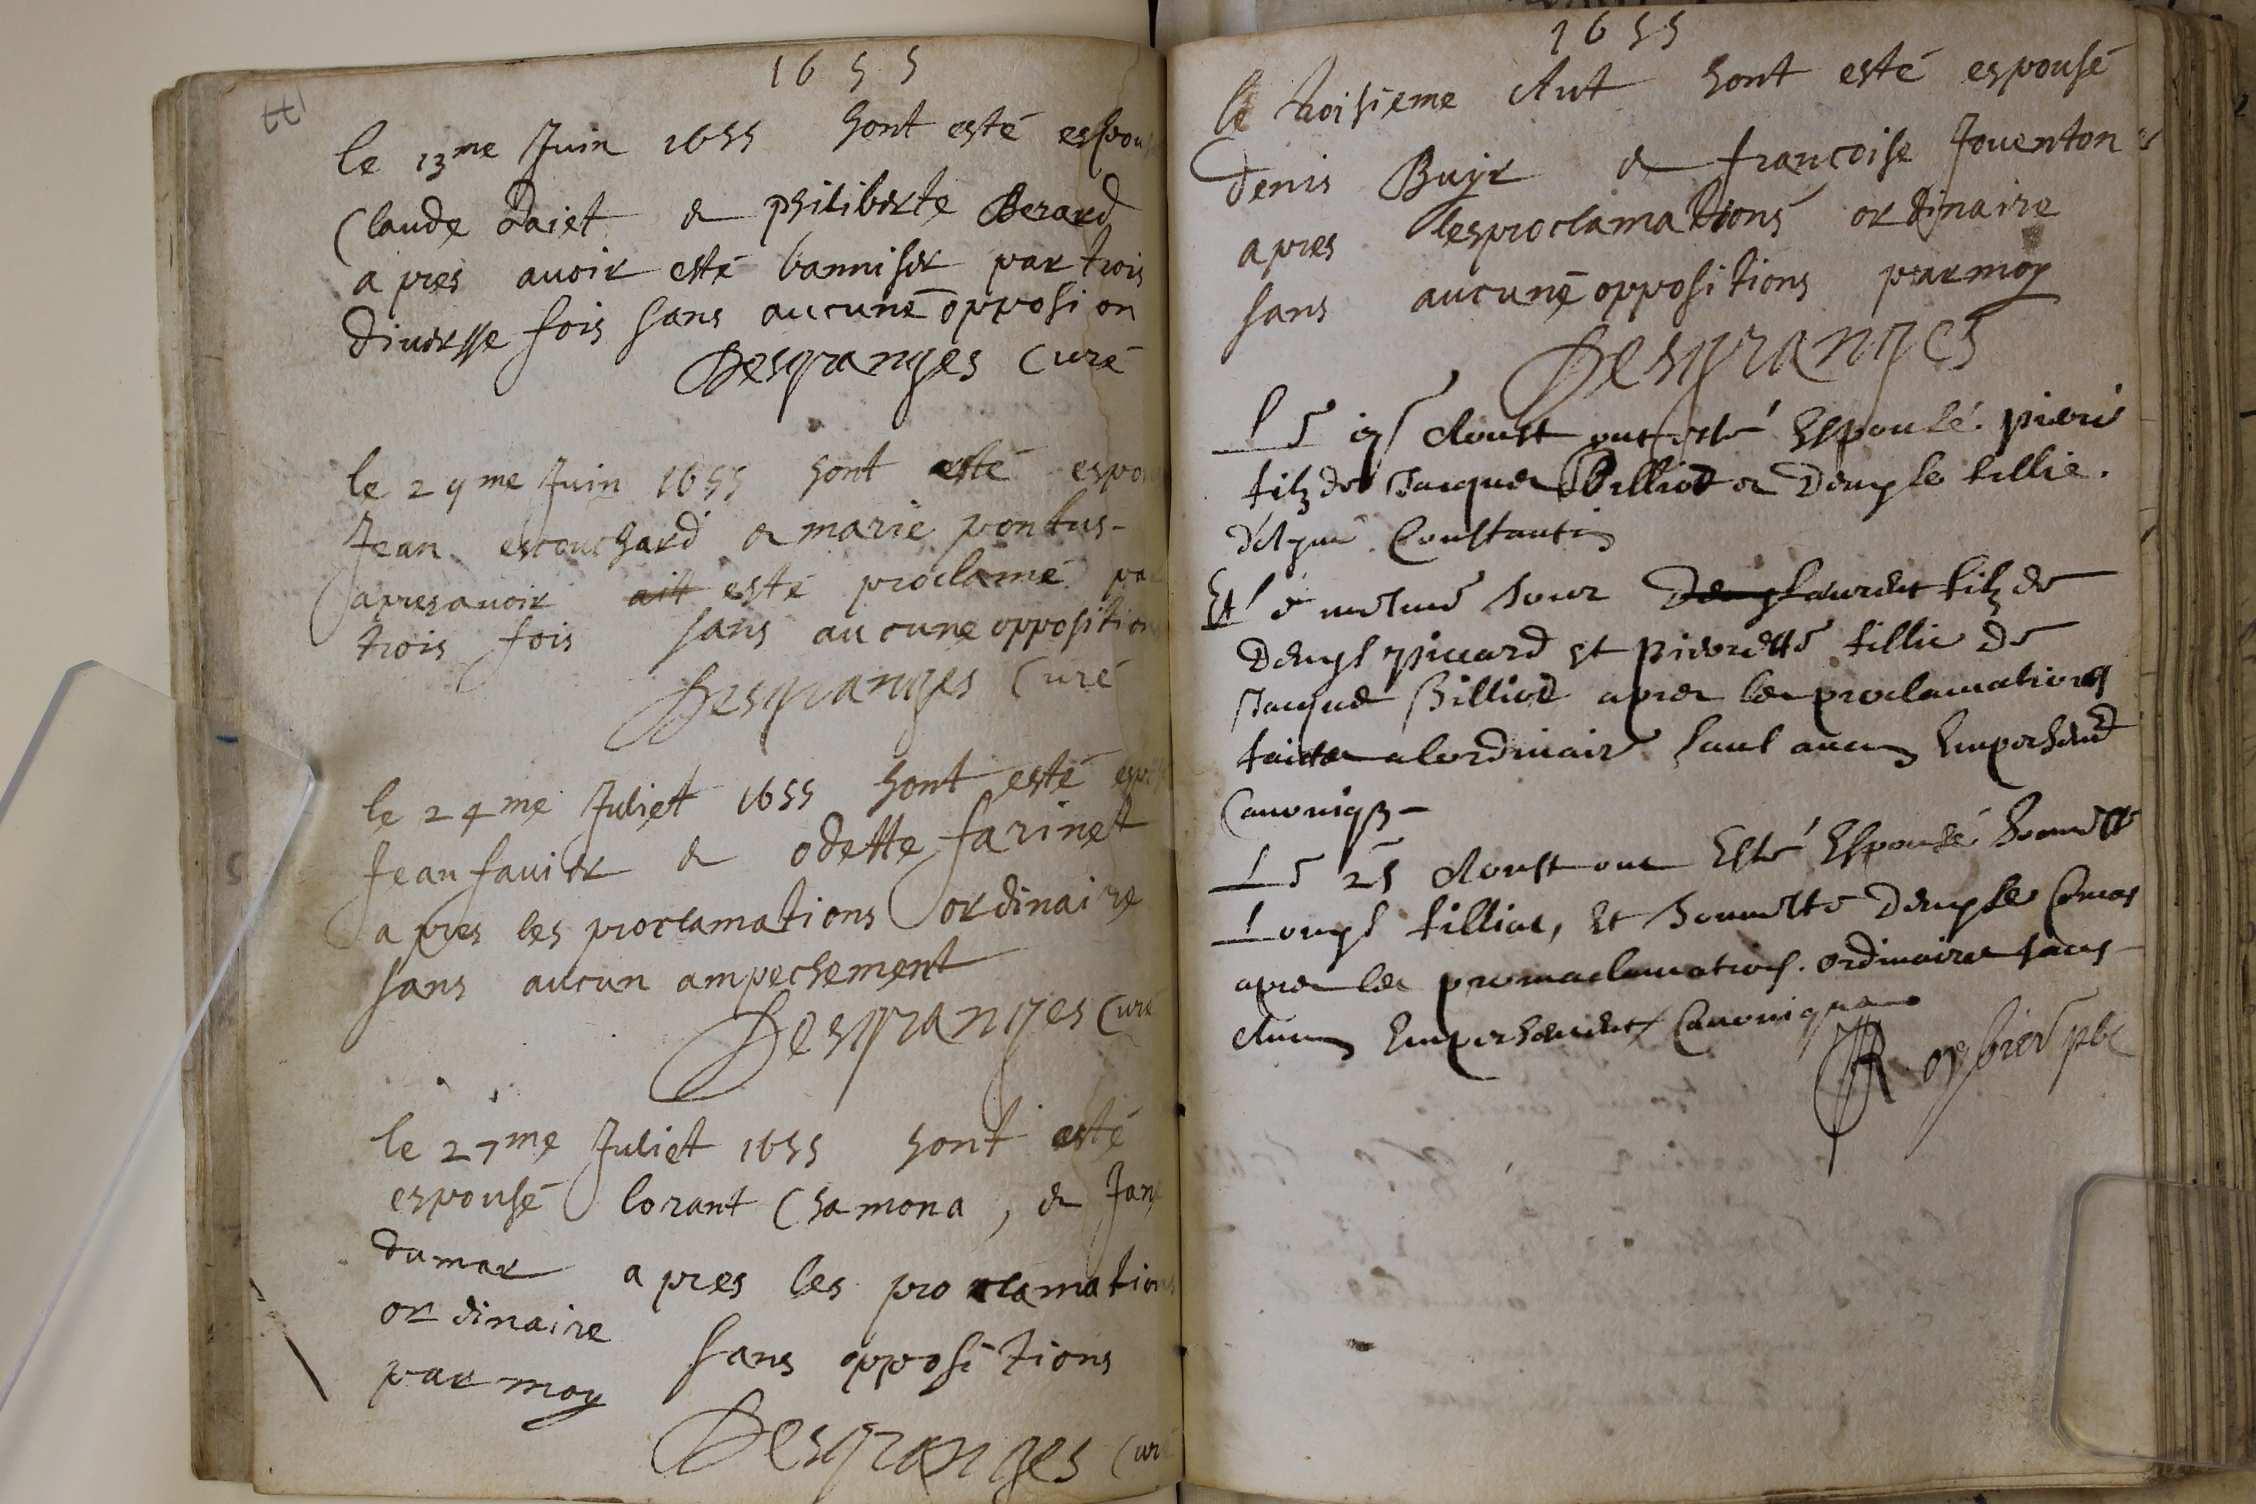 1655
le 13me Juin 1655 sont esté espou
Claude Daiet & philiberte Berard
apres auoir esté banniser par trois
diuersse fois sans aucune opposi on
Desgranges Curé
le 29me Juin 1655 sont esté espou
Jean escouchard & marie pontus-
apres auoir ait esté proclamé par
trois fois sans aucune oppositions
Desgranges Curé
le 24me Juliet 1655 sont esté espou
Jean fauier & odette farinet
apres les proclamations ordinaire
sans aucun ampechement
Desgranges Curé
le 27me Juliet 1655 sont esté
espousé lorant Chamona, & Jane
dumar apres les proclamations
ordinaire
par moy sans oppositions
Desgranges Curé
1655
le troisieme Aut sont esté espousé
Denis Buyr & francoise Jouenton
apres les proclamations ordinaire
sans aucune oppositions par moy
Desgranges
Le Aoust ont esté Espousé. pierre
filz de Jacques Billiod & fillie.
Constantin
Et le mesme Jour Denys laurent filz de
Denys piccard et pierrette fillie de
Jacques Billiod apres les proclamations
faictes a lordinaire sans aucun Empeschemd
Canoniqz-
Le 25 Aoust ont Esté Espousé
Louys filliat, Et
apres les promaclamations. ordinaires sans-
Aucun Empeschement Canonique
pbr